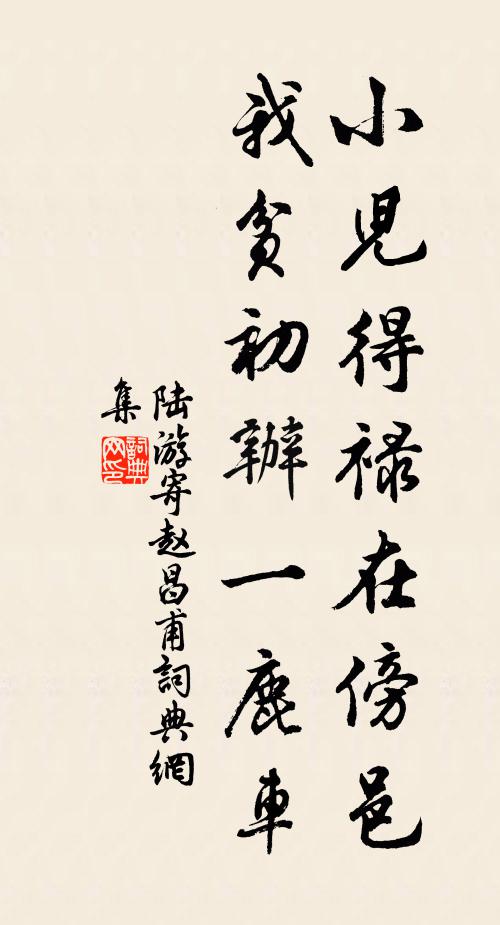 小児得祿在傍邑
我貧初辦一鹿車
陆游寄赵昌甫詞典網
集
詞典
网印